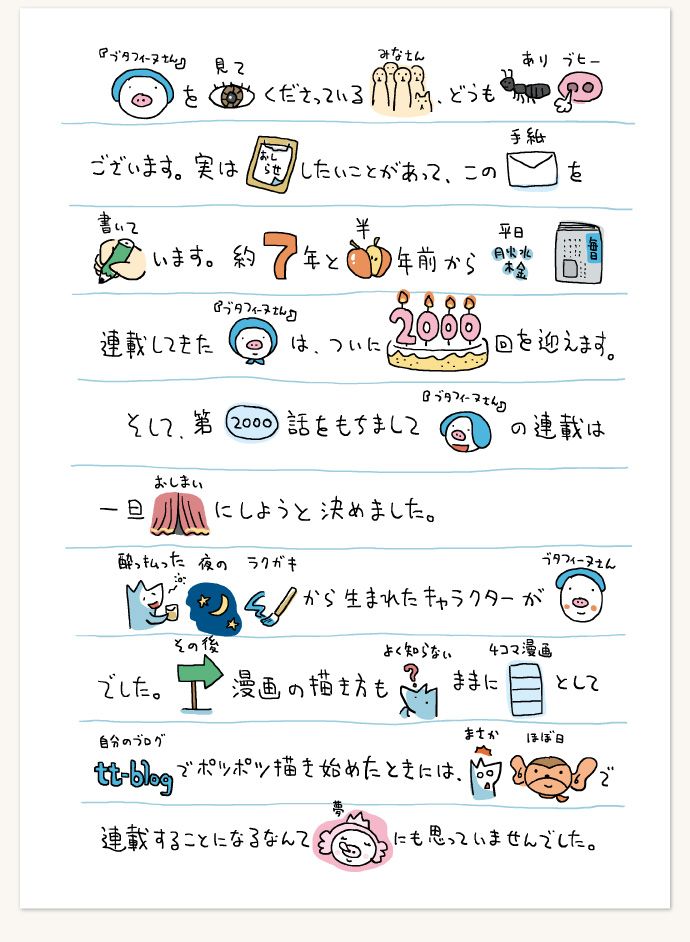 『ブタフィーヌさん』 見て みなさん あり ブヒー
を くださっている 、どうも
手紙
ございます。実は おしらせ したいことがあって、この を
書いて 半 平日
います。約 7 年と 年前から 月火水木金 毎日
『ブタフィーヌさん』
連載してきた は、ついに 2000 回を迎えます。
『ブタフィーヌさん』
そして、第 2000 話をもちまして の連載は
おしまい
一旦 にしようと決めました。
酔っ払った 夜の ラクガキ ブタフィーヌさん
から生まれたキャラクターが
その後 よく知らない 4コマ漫画
でした。 漫画の描き方も ? ままに として
自分のブログ まさか ほぼ日
tt-blog でポツポツ描き始めたときには、 で
夢
連載することになるなんて にも思っていませんでした。